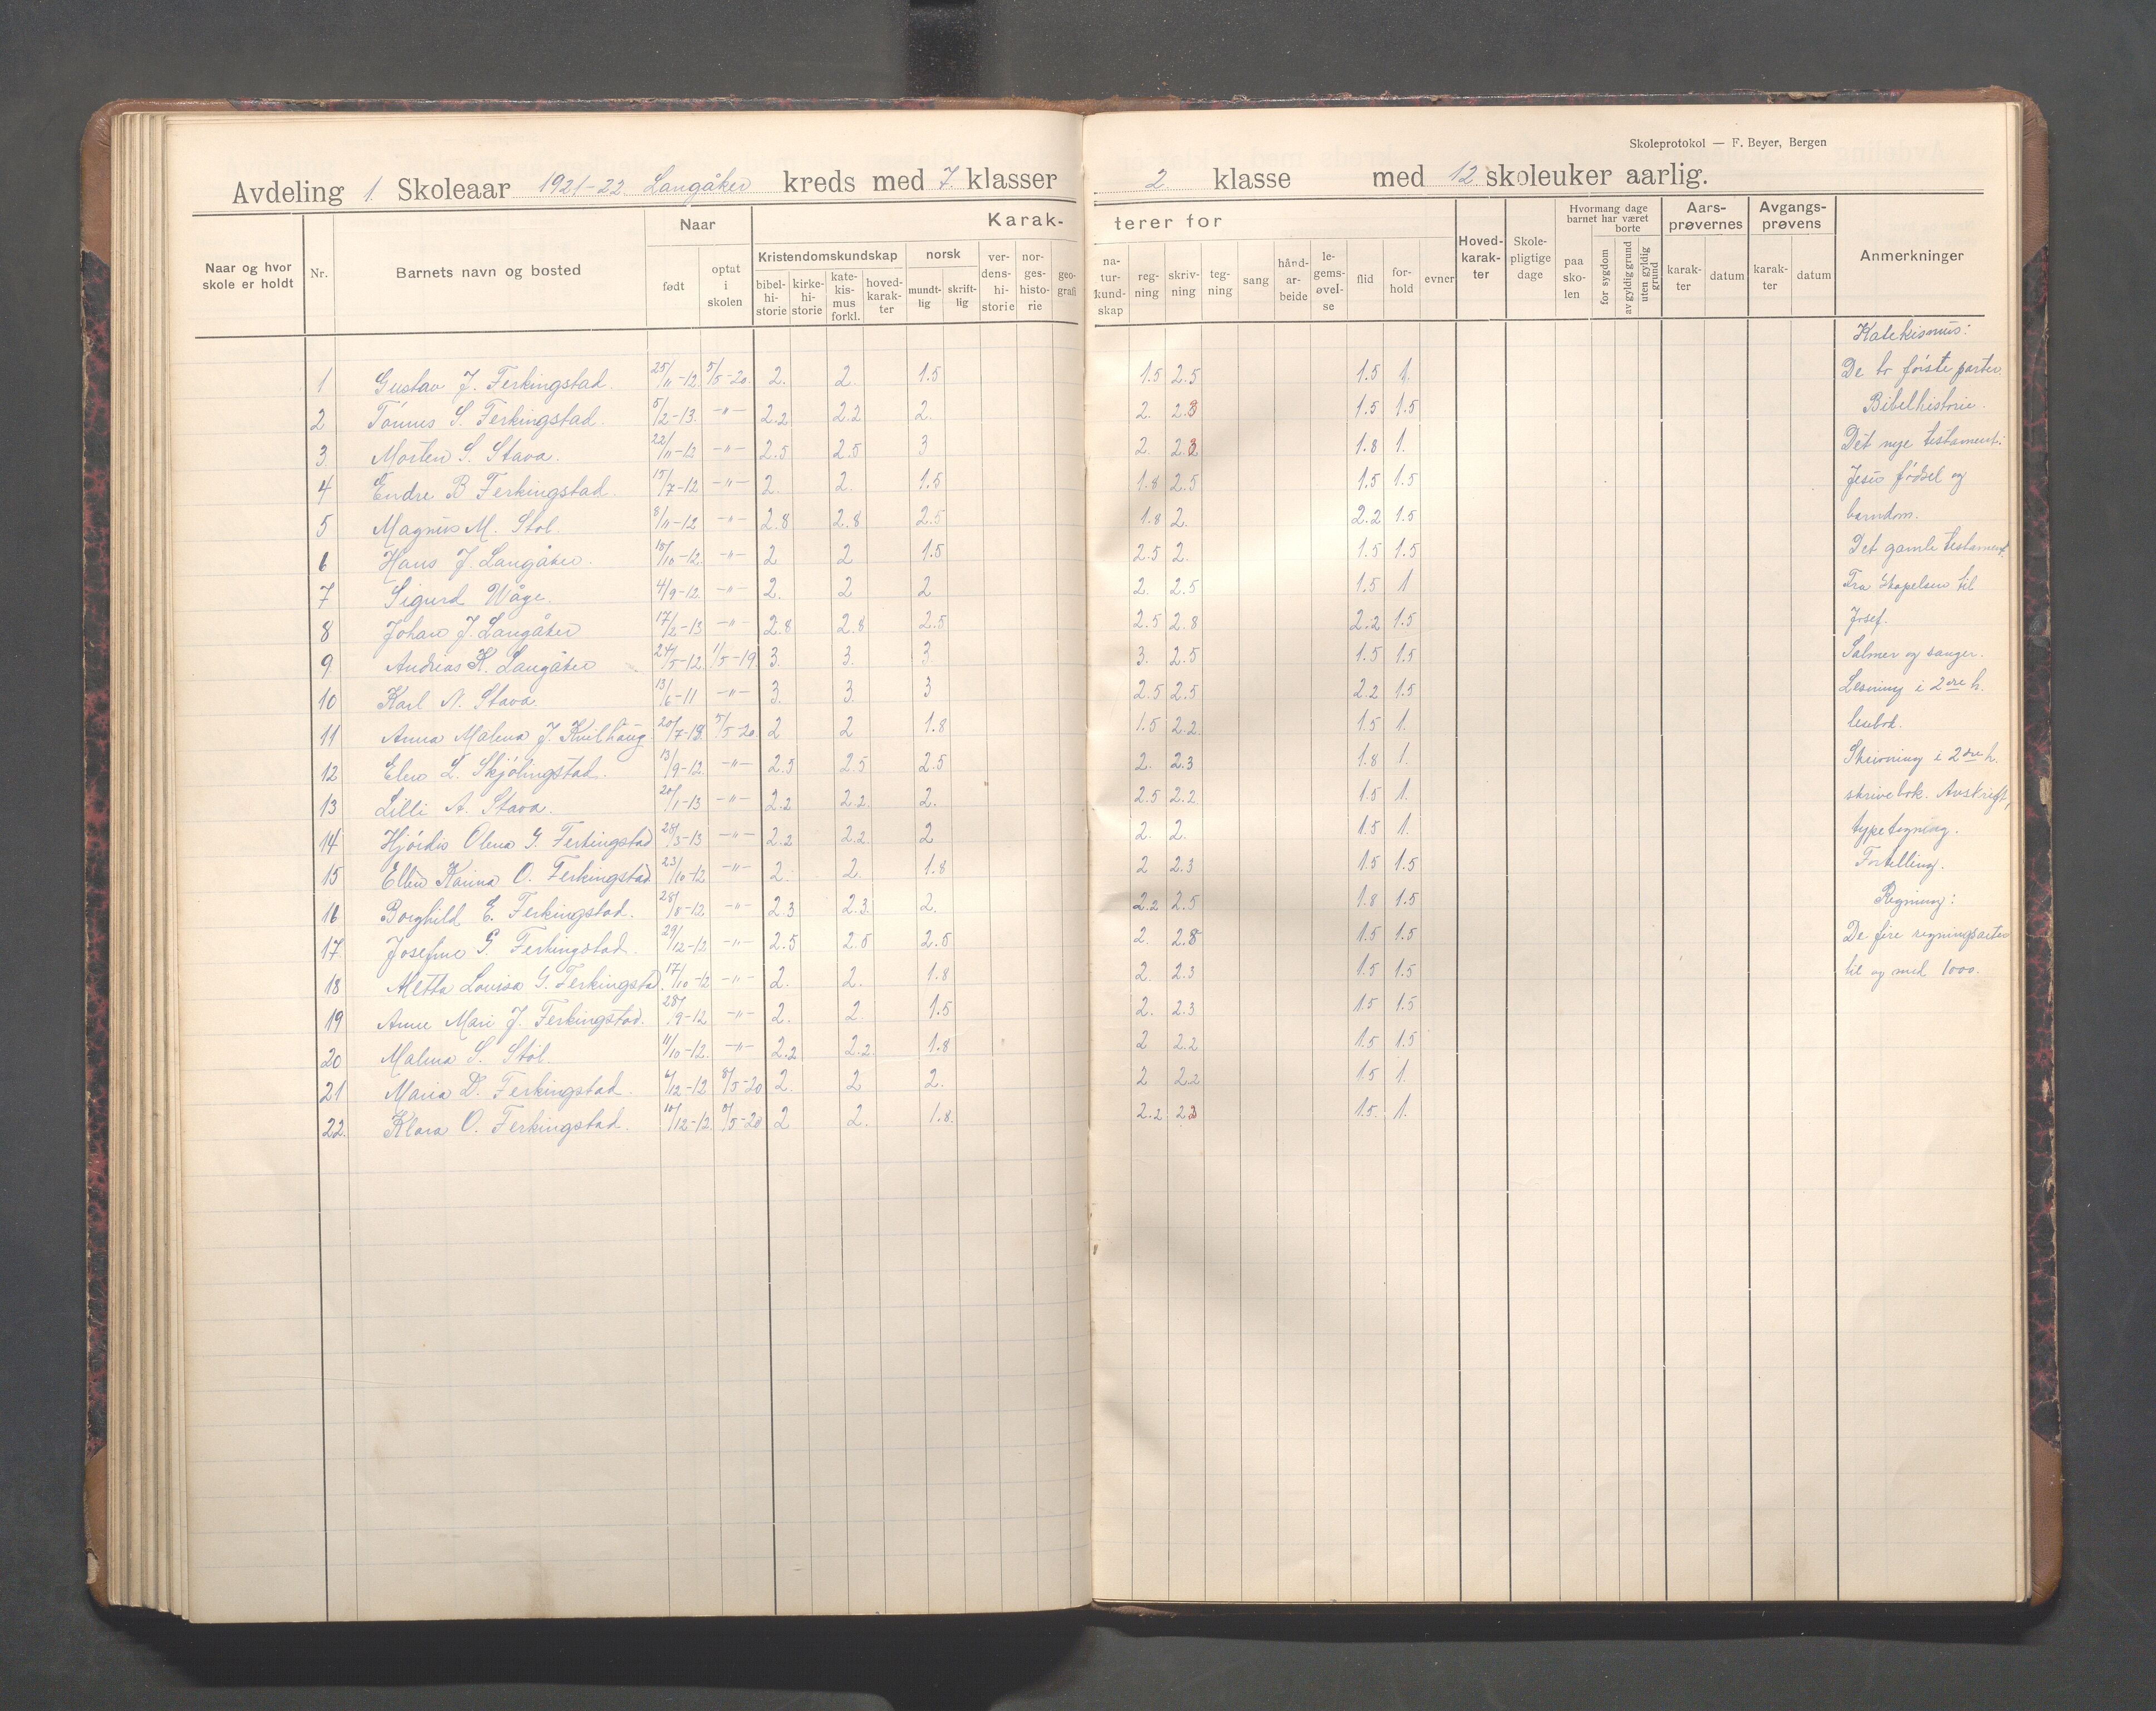 Skoleprotokol — F. Beyer, Bergen
Avdeling 1. Skoleaar 1921-22 Langåker kreds med 7. klasser 2 klasse med 12 skoleuker aarlig.
Naar og hvor skole er holdt
Nr.
Barnets navn og bosted
Naar
født
optat i skolen
Karakterer for
Kristendomskundskap
bibelhistorie
kirkehistorie
katekismus forkl.
hovedkarakter
norsk
mundtlig
skriftlig
verdenshistorie
norgeshistorie
geografi
naturkundskap
regning
skrivning
tegning
sang
håndarbeide
legemsøvelse
flid
forhold
evner
Hovedkarakter
Skolepligtige dage
Hvormang dage barnet har været
paa skolen
borte
for sygdom
av gyldig grund
uten gyldig grund
Aarsprøvernes
karakter
datum
Avgangsprøvens
karakter
datum
Anmerkninger
1 Gustav J. Ferkingstad. 25/11-12. 5/5-20. 2. 2. 1.5 1.5 2.5 1.5 1.
2 Tönnes S. Ferkingstad. 5/2-13. -"- 2.2 2.2 2. 2. 2.3 1.5 1.5
3 Morten S. Stava. 22/11-12 -"- 2.5 2.5 3 2. 1.8 1.
4 Endre B Ferkingstad. 15/7-12 -"- 2. 2. 1.5 1.8 2.5 1.5 1.5
5 Magnus M. Stol. 8/11-12 -"- 2.8 2.8 2.5 1.8 2. 2.2 1.5
6 Hans J. Langåker. 15/10-12. -"- 2 2 1.5 2.5 2. 1.5 1.5
7 Sigurd Våge. 4/9-12. -"- 2. 2 2 2. 2.5 1.5 1
8 Johan J. Langåker 17/2-13 -"- 2.8 2.8 2.5 2.5 2.8 2.2 1.5
9 Andreas K. Langåker 24/5-12. 1/5-19. 3. 3. 3 3. 2.5 1.5 1.5
10 Karl N. Stava. 13/6-11 -"- 3. 3. 3 2.5 2.5 2.2 1.5
11 Anna Malena J. Kvilhaug 20/7-12 5/5-20. 2 2 1.8 1.5 2.2. 1.5 1.
12 Elen L. Skjölingstad. 13/9-12. -"- 2.5 2.5 2.5 2. 2.3 1.8 1.
13 Lilli A. Stava. 20/1-13 -"- 2.2 2.2. 2. 2.5 2.2. 1.5 1.
14 Hjördis Olena G. Ferkingstad 28/3-13 -"- 2.2 2.2. 2 2. 2. 1.5 1.
15 Ellen Karina O. Ferkingstad. 23/10-12 -"- 2. 2. 1.8 2 2.3 1.5 1.5
16 Borghild E. Ferkingstad. 28/8-12 -"- 2.3 2.3. 2. 2.2 2.5 1.8 1.5
17. Josefine G. Ferkingstad. 29/12-12 -"- 2.5 2.5 2.5 2. 2.8 1.5 1.5
18 Metta Lovisa G. Ferkingstad. 17/10-12 -"- 2. 2. 1.8 2. 2.3 1.5 1.5
19 Anne Mari J. Ferkingstad. 28/9-12 -"- 2. 2. 1.5 2. 2.3 1.5 1.5
20 Malena S. Stöl. 11/10-12. -"- 2.2 2.2. 1.8 2 2.2 1.5 1.5
21 Maria D. Ferkingstad. 6/12-12 8/5-20 2. 2 2. 2 2.2 1.5 1.
22. Klara O. Ferkingstad. 10/12-12. 8/5-20 2 2. 1.8. 2.2 2.3 1.5. 1.
Katekismus:
De to förste parter.
Bibelhistorie.
Det nye testament:
Jesu födsel og
barndom.
Det gamle testament.
Fra Skapelsen til
Josef.
Salmer og sanger.
Lesning i 2dre h.
lesebok.
Skrivning i 2dre h.
skrivebok. Avskrift,
typetegning.
Fortelling.
Regning:
De fire regningsarter
til og med 1000.